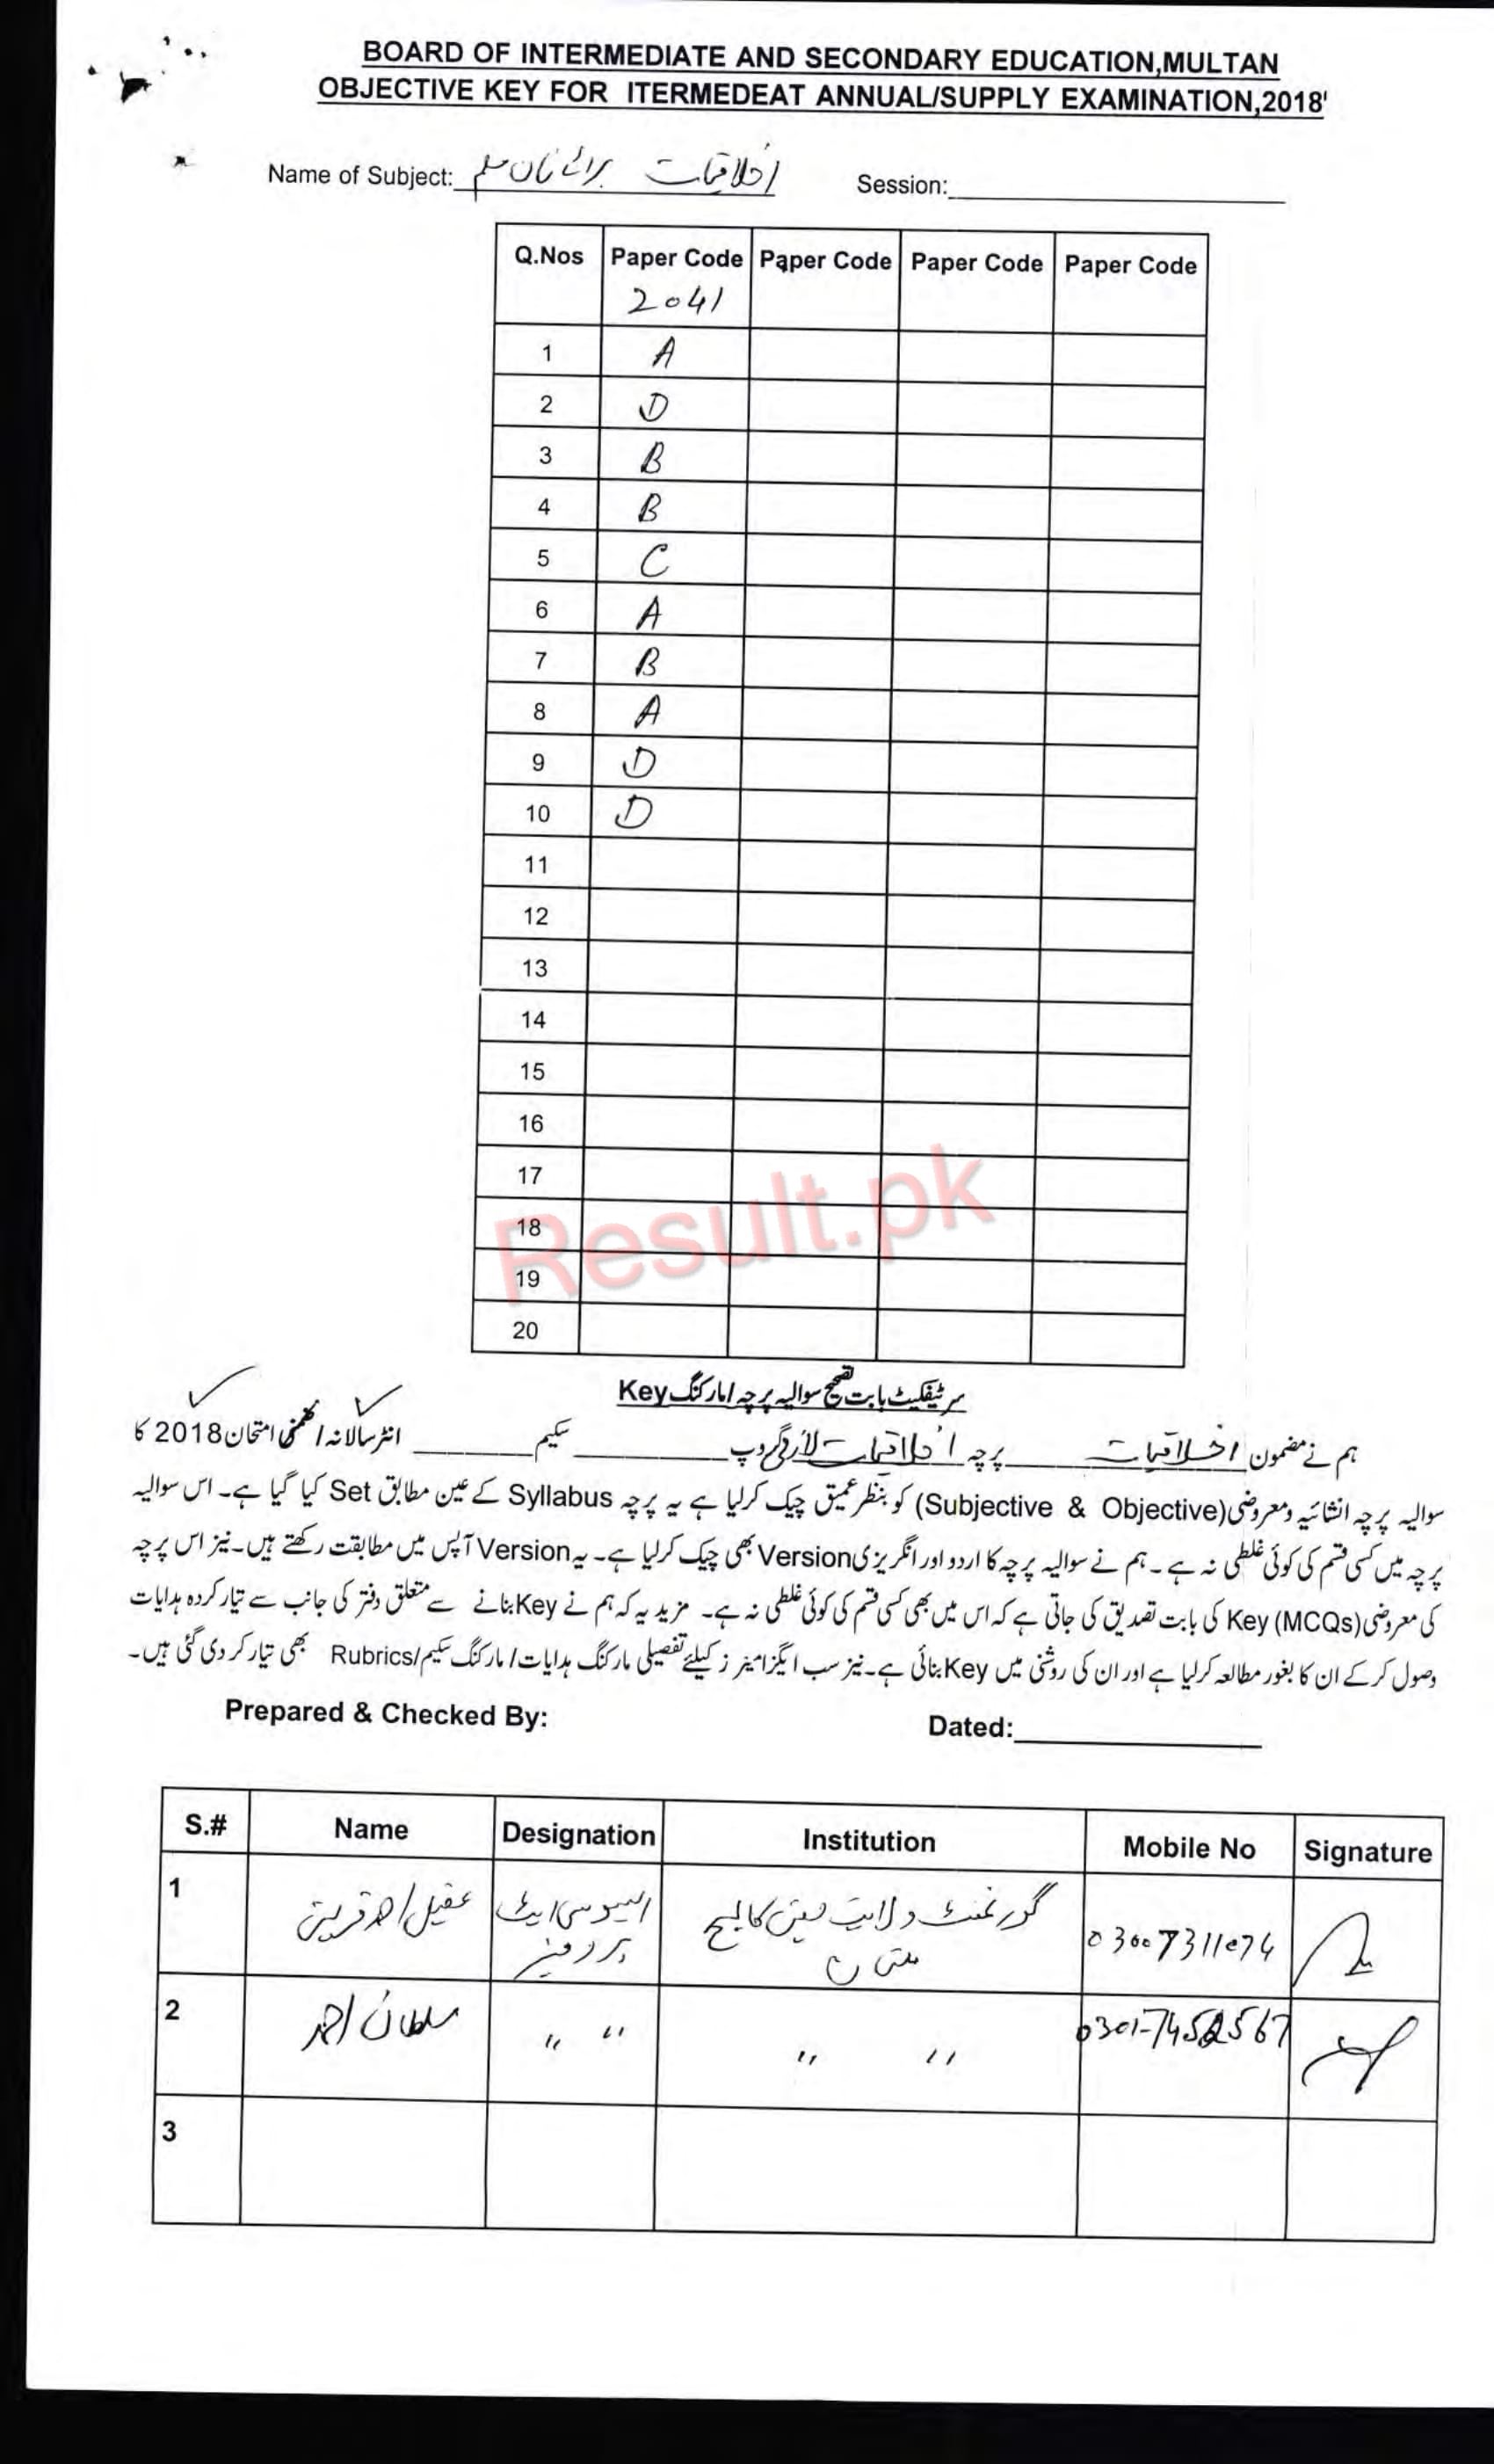 BOARD OF INTERMEDIATE AND SECONDARY EDUCATION,MULTAN
OBJECTIVE KEY FOR ITERMEDEAT ANNUAL/SUPPLY EXAMINATION,2018'
Name of Subject: اخلاقیات برائے نان مسلم Session:
Q.Nos Paper Code Paper Code Paper Code Paper Code
2041
1 A
2 D
3 B
4 B
5 C
6 A
7 B
8 A
9 D
10 D
11
12
13
14
15
16
17
18
19
20
Result.pk
سرٹیفکیٹ بابت تصحیح سوالیہ پرچہ/مارکنگ Key
ہم نے مضمون اخلاقیات پرچہ اخلاقیات لازمی گروپ سکیم انٹر سالانہ/ضمنی امتحان 2018 کا
سوالیہ پرچہ انشائیہ ومعروضی (Subjective & Objective) کو بنظر عمیق چیک کرلیا ہے یہ پرچہ Syllabus کے عین مطابق Set کیا گیا ہے۔ اس سوالیہ
پرچہ میں کسی قسم کی کوئی غلطی نہ ہے۔ ہم نے سوالیہ پرچہ کا اردو اور انگریزی Version بھی چیک کرلیا ہے۔ یہ Version آپس میں مطابقت رکھتے ہیں۔ نیز اس پرچہ
کی معروضی Key (MCQs) کی بابت تصدیق کی جاتی ہے کہ اس میں بھی کسی قسم کی کوئی غلطی نہ ہے۔ مزید یہ کہ ہم نے Key بنانے سے متعلق دفتر کی جانب سے تیار کردہ ہدایات
وصول کرکے ان کا بغور مطالعہ کرلیا ہے اور ان کی روشنی میں Key بنائی ہے۔ نیز سب ایگزامینرز کیلئے تفصیلی مارکنگ ہدایات/مارکنگ سکیم/Rubrics بھی تیار کردی گئی ہیں۔
Prepared & Checked By: Dated:
S.# Name Designation Institution Mobile No Signature
1 عقیل احمد قریشی ایسوسی ایٹ پروفیسر گورنمنٹ ولایت حسین کالج ملتان 03007311074
2 سلطان احمد " " " " 0301-7452567
3